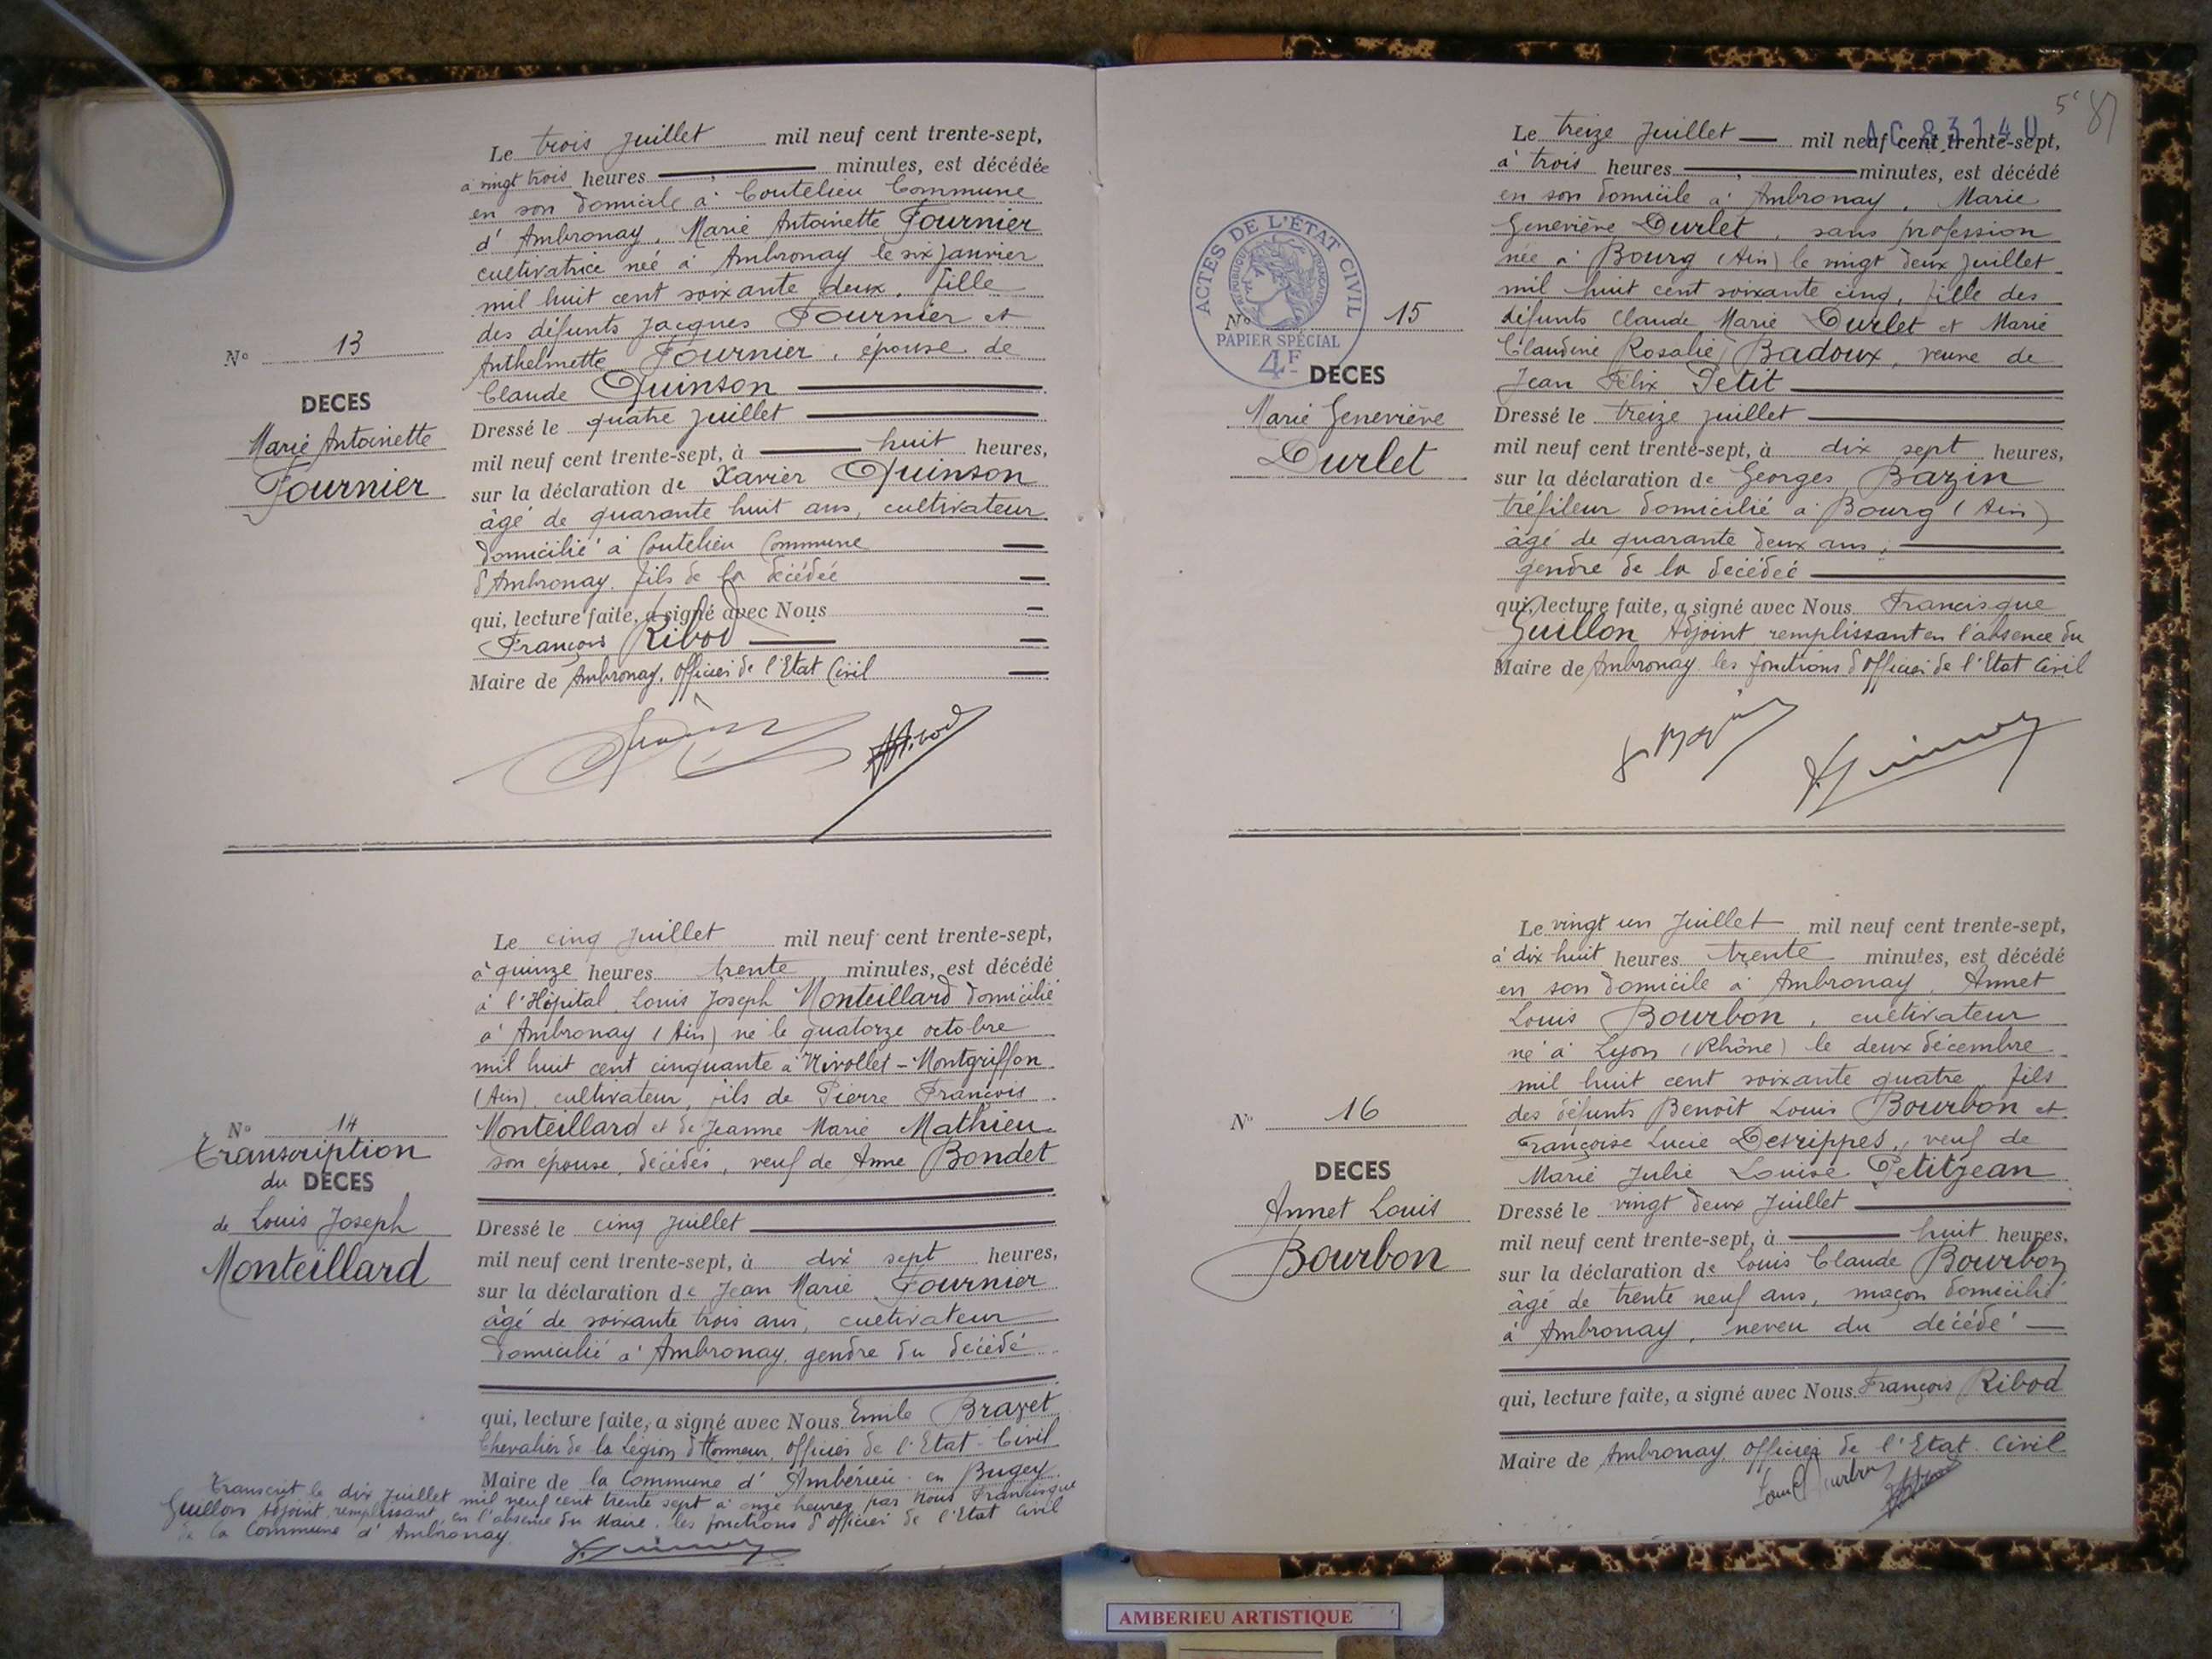 Le trois Juillet mil neuf cent trente-sept,
à vingt trois heures minutes, est décédée
en son domicile à Coutelieu Commune
d'Ambronay, Marie Antoinette Fournier
cultivatrice née à Ambronay le six Janvier
mil huit cent soixante deux, fille
des défunts Jacques Fournier et
Anthelmette Fournier, épouse de
Claude Quinson
Dressé le quatre juillet
mil neuf cent trente-sept, à huit heures,
sur la déclaration de Xavier Quinson
âgé de quarante huit ans, cultivateur
domicilié à Coutelieu Commune
d'Ambronay, fils de la décédée
qui, lecture faite, a signé avec Nous
François Ribod
Maire de Ambronay, Officier de l'Etat Civil
N° 13
DECES
Marie Antoinette
Fournier
Le cinq Juillet mil neuf cent trente-sept,
à quinze heures trente minutes, est décédé
à l'Hôpital, Louis Joseph Monteillard domicilié
à Ambronay (Ain) né le quatorze octobre
mil huit cent cinquante à Nivollet-Montgriffon
(Ain), cultivateur, fils de Pierre François
Monteillard et de Jeanne Marie Mathieu
son épouse, décédés, veuf de Anne Bondet
Dressé le cinq Juillet
mil neuf cent trente-sept, à dix sept heures,
sur la déclaration de Jean Marie Fournier
âgé de soixante trois ans, cultivateur
domicilié à Ambronay, gendre du décédé
qui, lecture faite, a signé avec Nous Emile Bravet
Chevalier de la Légion d'Honneur, Officier de l'Etat-Civil
Maire de la Commune d'Ambérieu en Bugey
Transcrit le dix Juillet mil neuf cent trente sept à onze heures par Nous Francisque
Guillon Adjoint remplissant, en l'absence du Maire, les fonctions d'Officier de l'Etat Civil
de la Commune d'Ambronay
N° 14
Transcription
du DECES
de Louis Joseph
Monteillard
5e 87
AC 83140
Le treize Juillet mil neuf cent trente-sept,
à trois heures minutes, est décédé
en son domicile à Ambronay, Marie
Geneviève Durlet, sans profession
née à Bourg (Ain) le vingt deux Juillet
mil huit cent soixante cinq, fille des
défunts Claude Marie Durlet et Marie
Claudine Rosalie Badoux, veuve de
Jean Félix Petit
Dressé le treize juillet
mil neuf cent trente-sept, à dix sept heures,
sur la déclaration de Georges Bazin
tréfileur domicilié à Bourg (Ain)
âgé de quarante deux ans,
gendre de la décédée
qui, lecture faite, a signé avec Nous Francisque
Guillon Adjoint remplissant en l'absence du
Maire de Ambronay les fonctions d'Officier de l'Etat Civil
ACTES DE L'ÉTAT CIVIL
RÉPUBLIQUE FRANÇAISE
PAPIER SPÉCIAL
4F
N° 15
DECES
Marie Geneviève
Durlet
Le vingt un Juillet mil neuf cent trente-sept,
à dix huit heures trente minutes, est décédé
en son domicile à Ambronay, Annet
Louis Bourbon, cultivateur
né à Lyon (Rhône) le deux décembre
mil huit cent soixante quatre, fils
des défunts Benoît Louis Bourbon et
Françoise Lucie Desrippes, veuf de
Marie Julie Louise Petitjean
Dressé le vingt deux Juillet
mil neuf cent trente-sept, à huit heures,
sur la déclaration de Louis Claude Bourbon
âgé de trente neuf ans, maçon domicilié
à Ambronay, neveu du décédé
qui, lecture faite, a signé avec Nous François Ribod
Maire de Ambronay, Officier de l'Etat Civil
N° 16
DECES
Annet Louis
Bourbon
AMBERIEU ARTISTIQUE